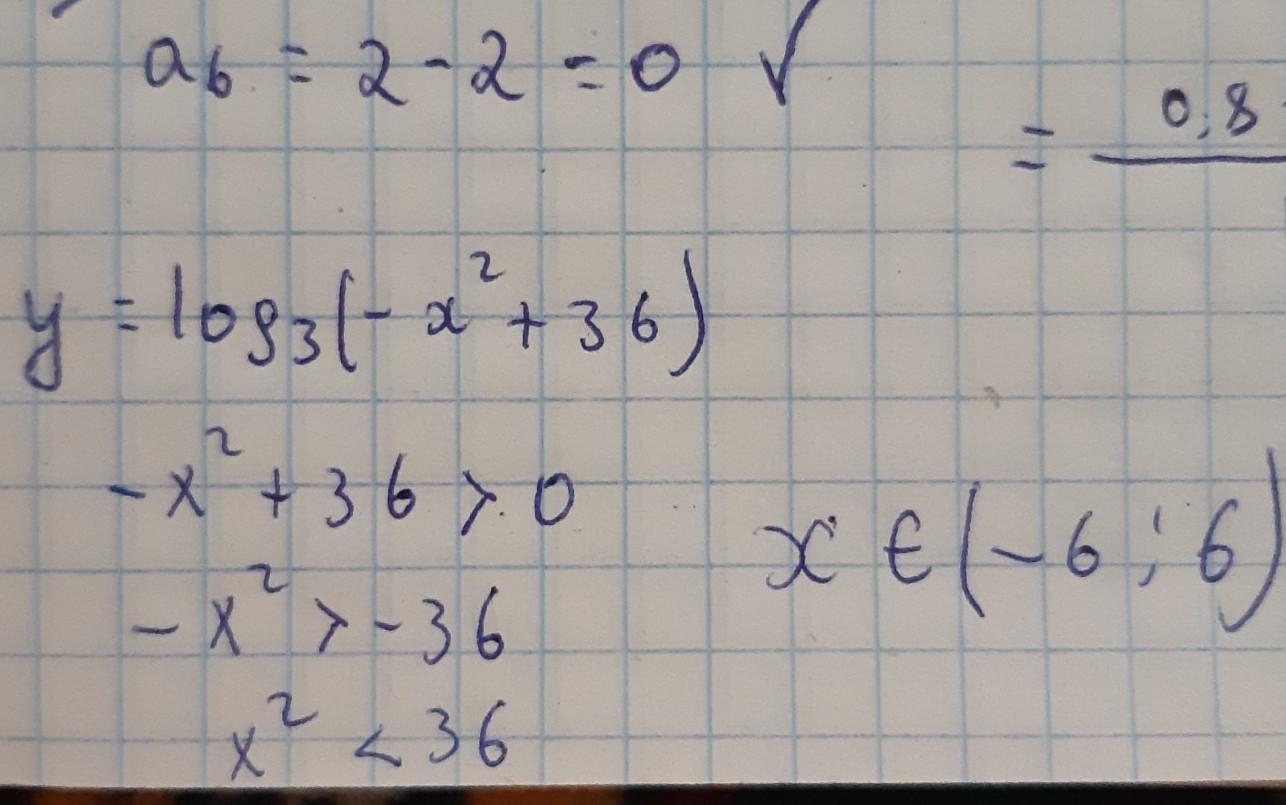 a₆ = 2 - 2 = 0 ✓
= 0,8
y = log₃(-x² + 36)
-x² + 36 > 0
x ∈ (-6 ; 6)
-x² > -36
x² < 36